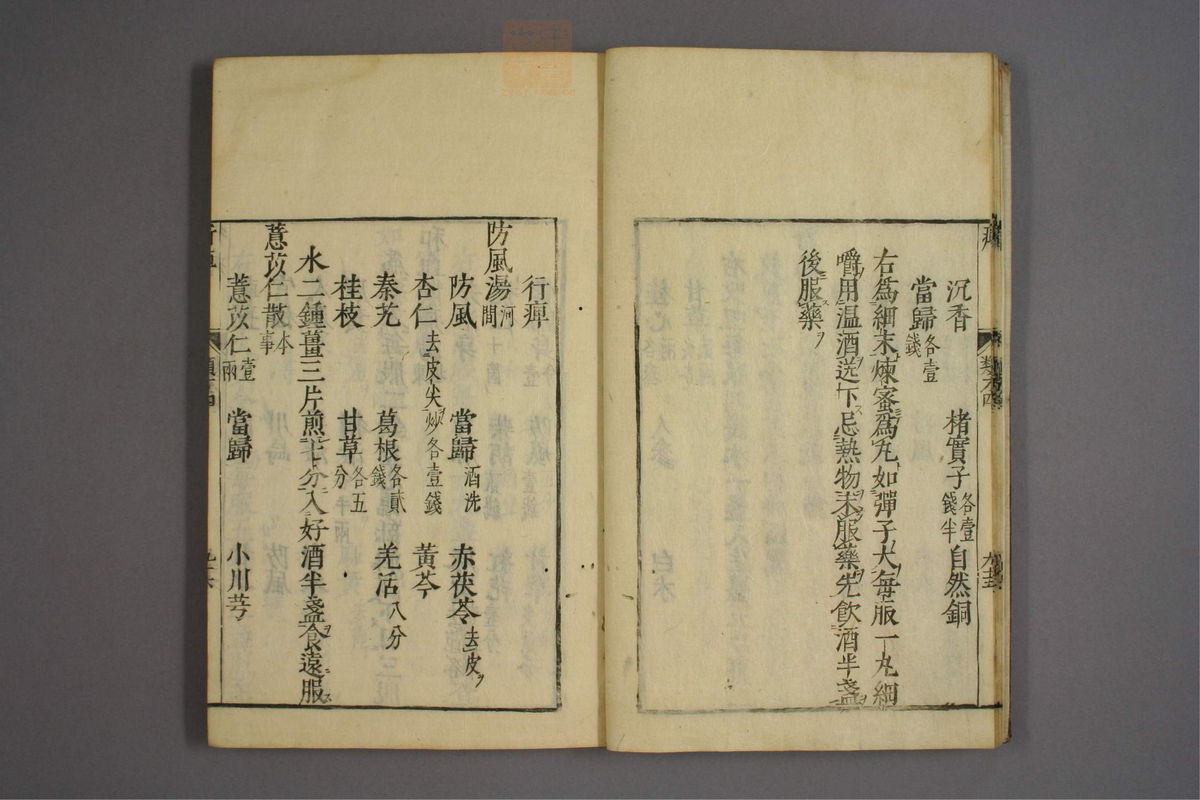 沉香　楮實子各壹錢半　自然銅
當歸各壹錢
右爲細末煉蜜爲丸如彈子大每服一丸細
嚼用温酒送下忌熱物未服藥先飲酒半盞
後服藥
行痺
防風湯河間
防風　當歸酒洗　赤茯苓去皮
杏仁去皮尖炒各壹錢　黄芩
秦艽　葛根各貳錢　羌活八分
桂枝　甘草各五分
水二鍾薑三片煎七分入好酒半盞食遠服
薏苡仁散本事
薏苡仁壹兩　當歸　小川芎